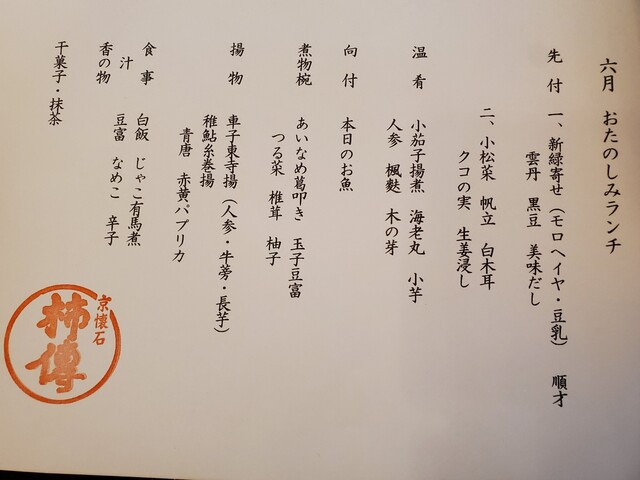 六月 おたのしみランチ
先付 一、新緑寄せ（モロヘイヤ・豆乳） 順才
雲丹 黒豆 美味だし
二、小松菜 帆立 白木耳
クコの実 生姜浸し
温肴 小茄子揚煮 海老丸 小芋
人参 楓麩 木の芽
向付 本日のお魚
煮物椀 あいなめ葛叩き 玉子豆富
つる菜 椎茸 柚子
揚物 車子東寺揚（人参・牛蒡・長芋）
稚鮎糸巻揚
青唐 赤黄パプリカ
食事 白飯 じゃこ有馬煮
汁 豆富 なめこ 辛子
香の物
干菓子・抹茶
京懐石
柿傳